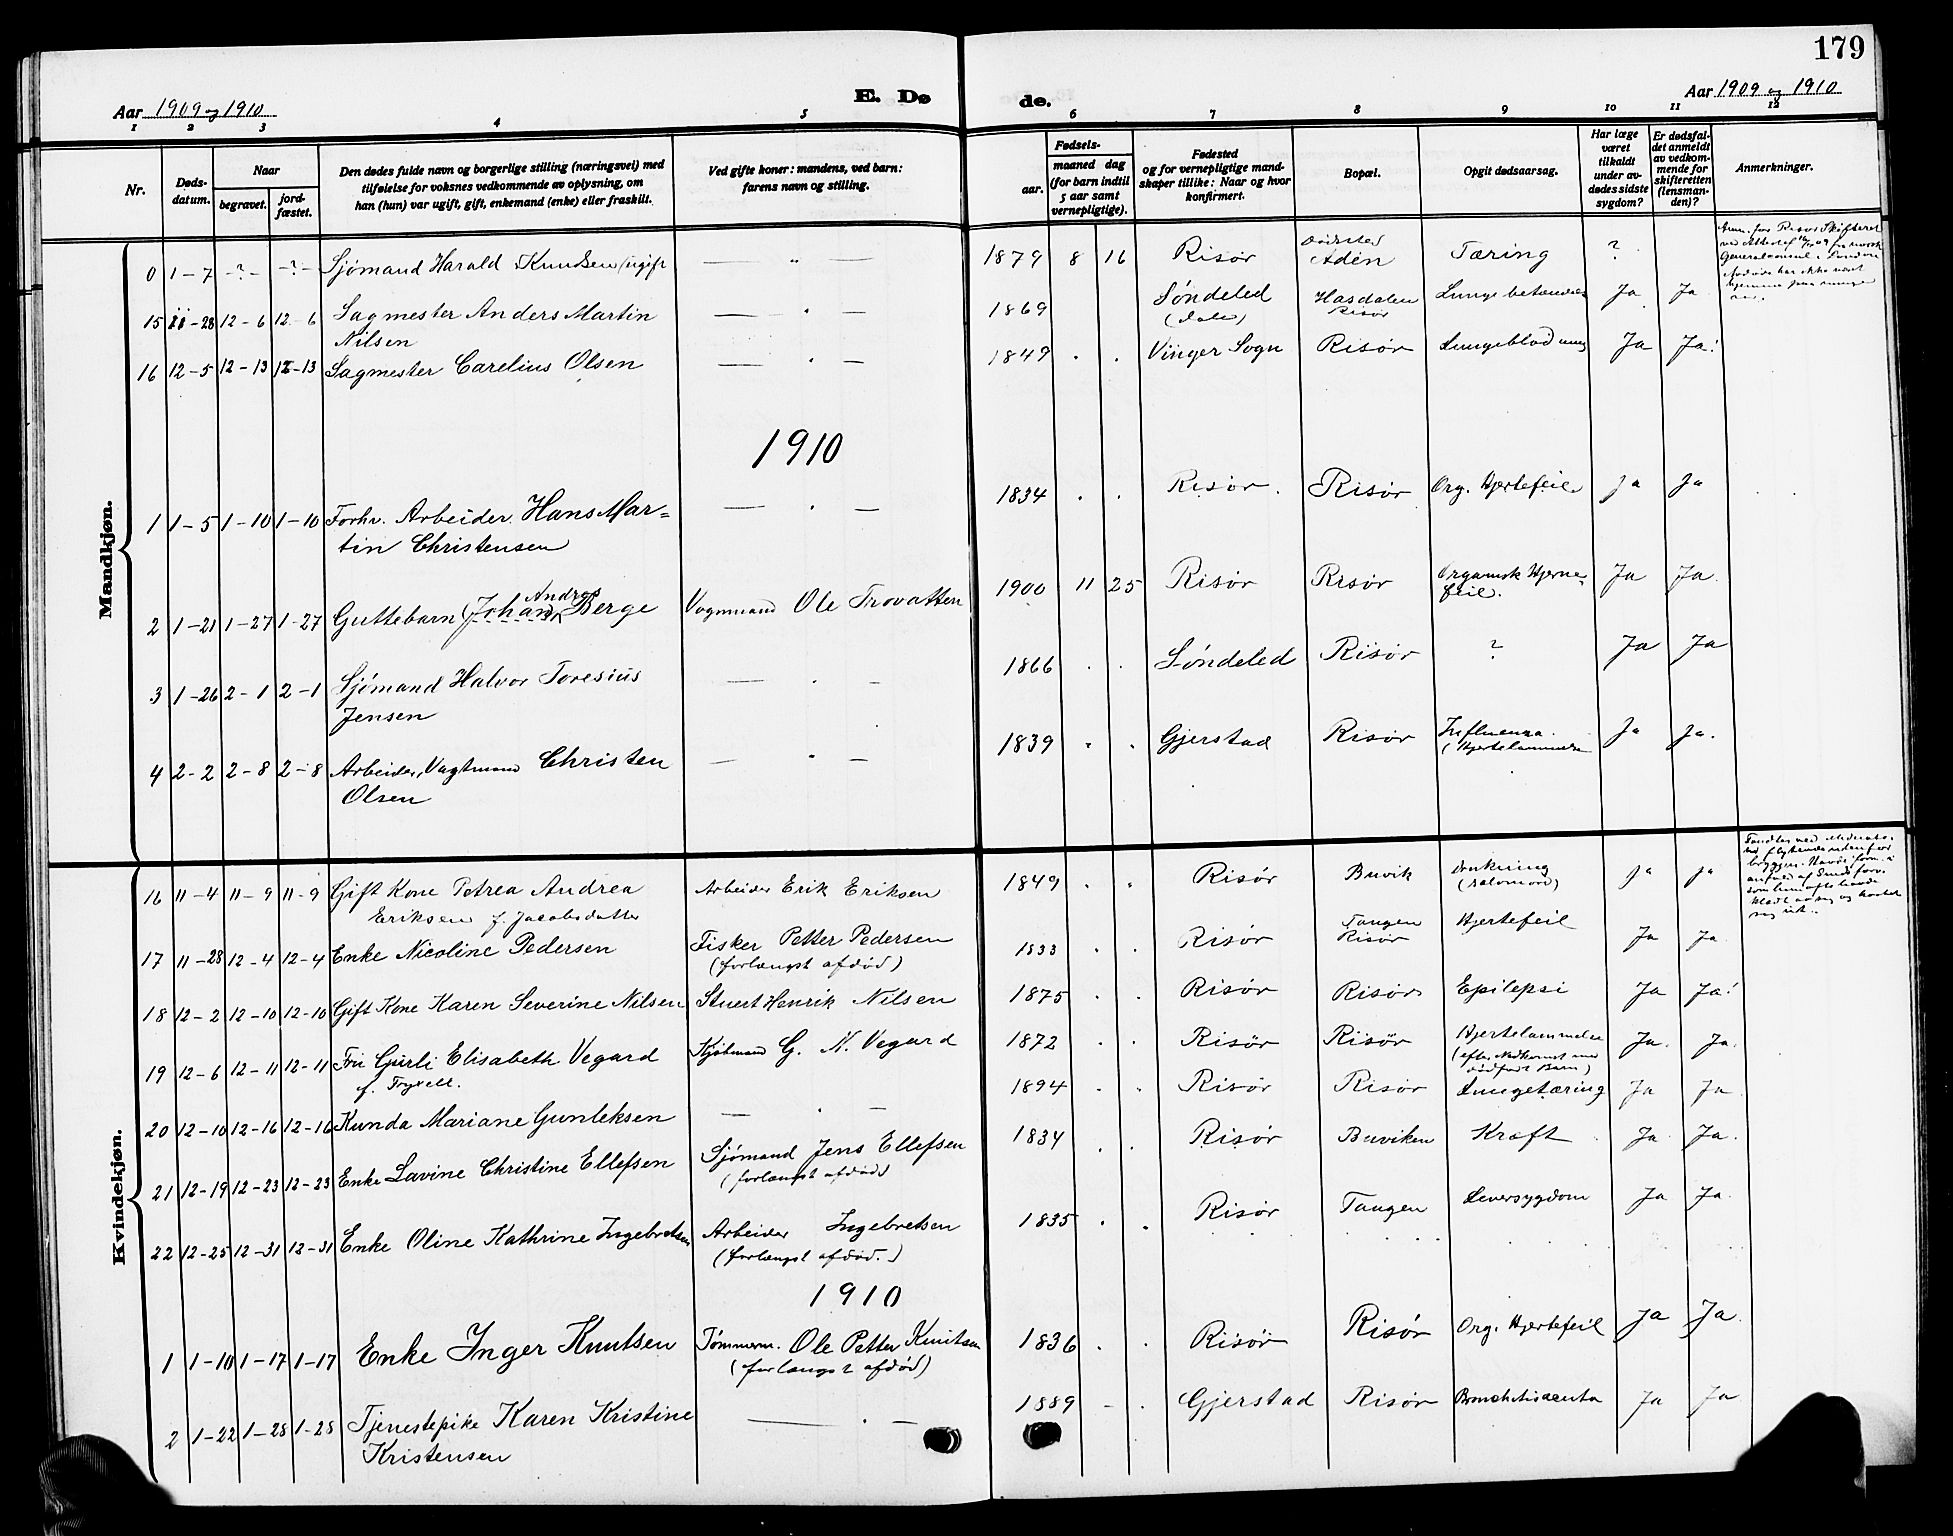 179
Aar 1909 og 1910
E. Dø
de.
Aar 1909 og 1910
1 2 3 4 5 6 7 8 9 10 11 12
Nr.
Døds-
datum.
Naar
begravet.
jord-
fæstet.
Den dødes fulde navn og borgerlige stilling (næringsvei) med
tilføielse for voksnes vedkommende av oplysning, om
han (hun) var ugift, gift, enkemand (enke) eller fraskilt.
Ved gifte koner: mandens, ved barn:
farens navn og stilling.
Fødsels-
aar.
maaned dag
(for barn indtil
5 aar samt
vernepligtige).
Fødested
og for vernepligtige mand-
skaper tillike: Naar og hvor
konfirmert.
Bopæl.
Opgit dødsaarsag.
Har læge
været
tilkaldt
under av-
dødes sidste
sygdom?
Er dødsfal-
det anmeldt
av vedkom-
mende for
skifteretten
(lensman-
den)?
Anmerkninger.
Mandkjøn.
0 1-7 -?- -?- Sjømand Harald Knudsen (ugift — " — 1879 8 16 Risør Dødsted Aden Tæring ?
15 11-28 12-6 12-6 Sagmester Anders Martin
Nilsen — " — 1869 Søndeled
(Dale) Hasdalen
Risør Ja Ja
16 12-5 12-13 12-13 Sagmester Carelius Olsen — " — 1849 . . Vinger Sogn Risør Ja Ja.
1910
1 1-5 1-10 1-10 Forhv. Arbeider Hans Mar=
tin Christensen — " — 1834 . . Risør. Risør Org. Hjertefeil Ja Ja
2 1-21 1-27 1-27 Guttebarn Johan Andreas Berge Vognmand Ole Trovatten 1900 11 25 Risør Risør Organisk Hjerne-
feil. Ja Ja.
3 1-26 2-1 2-1 Sjømand Halvor Toresius
Jensen — . — 1866 . . Søndeled Risør ? Ja Ja
4 2-2 2-8 2-8 Arbeider, Vagtmand Christen
Olsen — " — 1839 . . Gjerstad Risør Influenza.
(Hjertelammelse Ja Ja.
Kvindekjøn.
16 11-4 11-9 11-9 Gift Kone Petrea Andrea
Eriksen f. Jacobsdatter Arbeider Erik Eriksen 1849 . . Risør Buvik Drukning
(selvmord) Ja Ja
17 11-28 12-4 12-4 Enke Nicoline Pedersen Fisker Petter Pedersen
(forlængst afdød) 1833 . . Risør Tangen
Risør Hjertefeil Ja Ja
18 12-2 12-10 12-10 Gift Kone Karen Severine Nilsen Stuert Henrik Nilsen 1875 . . Risør Risør Epilepsi Ja Ja.
19 12-6 12-11 12-11 Fru Gurli Elisabeth Vegard
f. Tryxell. Kjøbmand G. K. Vegard 1872 . . Risør Risør Hjertelammelse
(efter Nedkomst med
dødfødt Barn) Ja. Ja.
20 12-10 12-16 12-16 Kunda Mariane Gunleksen — . — 1894 . . Risør Risør Lungetæring Ja Ja
21 12-19 12-23 12-23 Enke Lavine Christine Ellefsen Sjømand Jens Ellefsen
(forlængst afdød) 1834 . . Risør Buviken Kræft Ja Ja.
22 12-25 12-31 12-31 Enke Oline Kathrine Ingebretsen Arbeider Ingebretsen
(forlængst afdød.) 1835 . . Risør Tangen Leversygdom Ja Ja.
1910
1 1-10 1-17 1-17 Enke Inger Knutsen Tømmerm. Ole Petter Knutsen
(forlængst afdød) 1836 . . Risør Risør Org. Hjertefeil Ja Ja.
2 1-22 1-28 1-28 Tjenestepike Karen Kristine
Kristensen — . — 1889 - . Gjerstad Risør Ja Ja